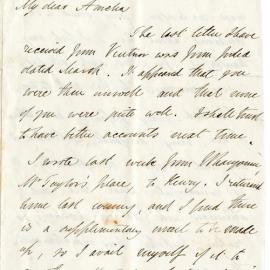 My dear Amelia
The last letter I have
received from Ventnor was from
dated March. It appeared that you
were then unwell and that some
of you were quite well. I shall trust
to have better accounts next time.
I wrote last week from
Mr Taylor's place, to Henry. I returned
home last evening, and I find there
is a supplementary mail to be made
up, so I avail myself of it to